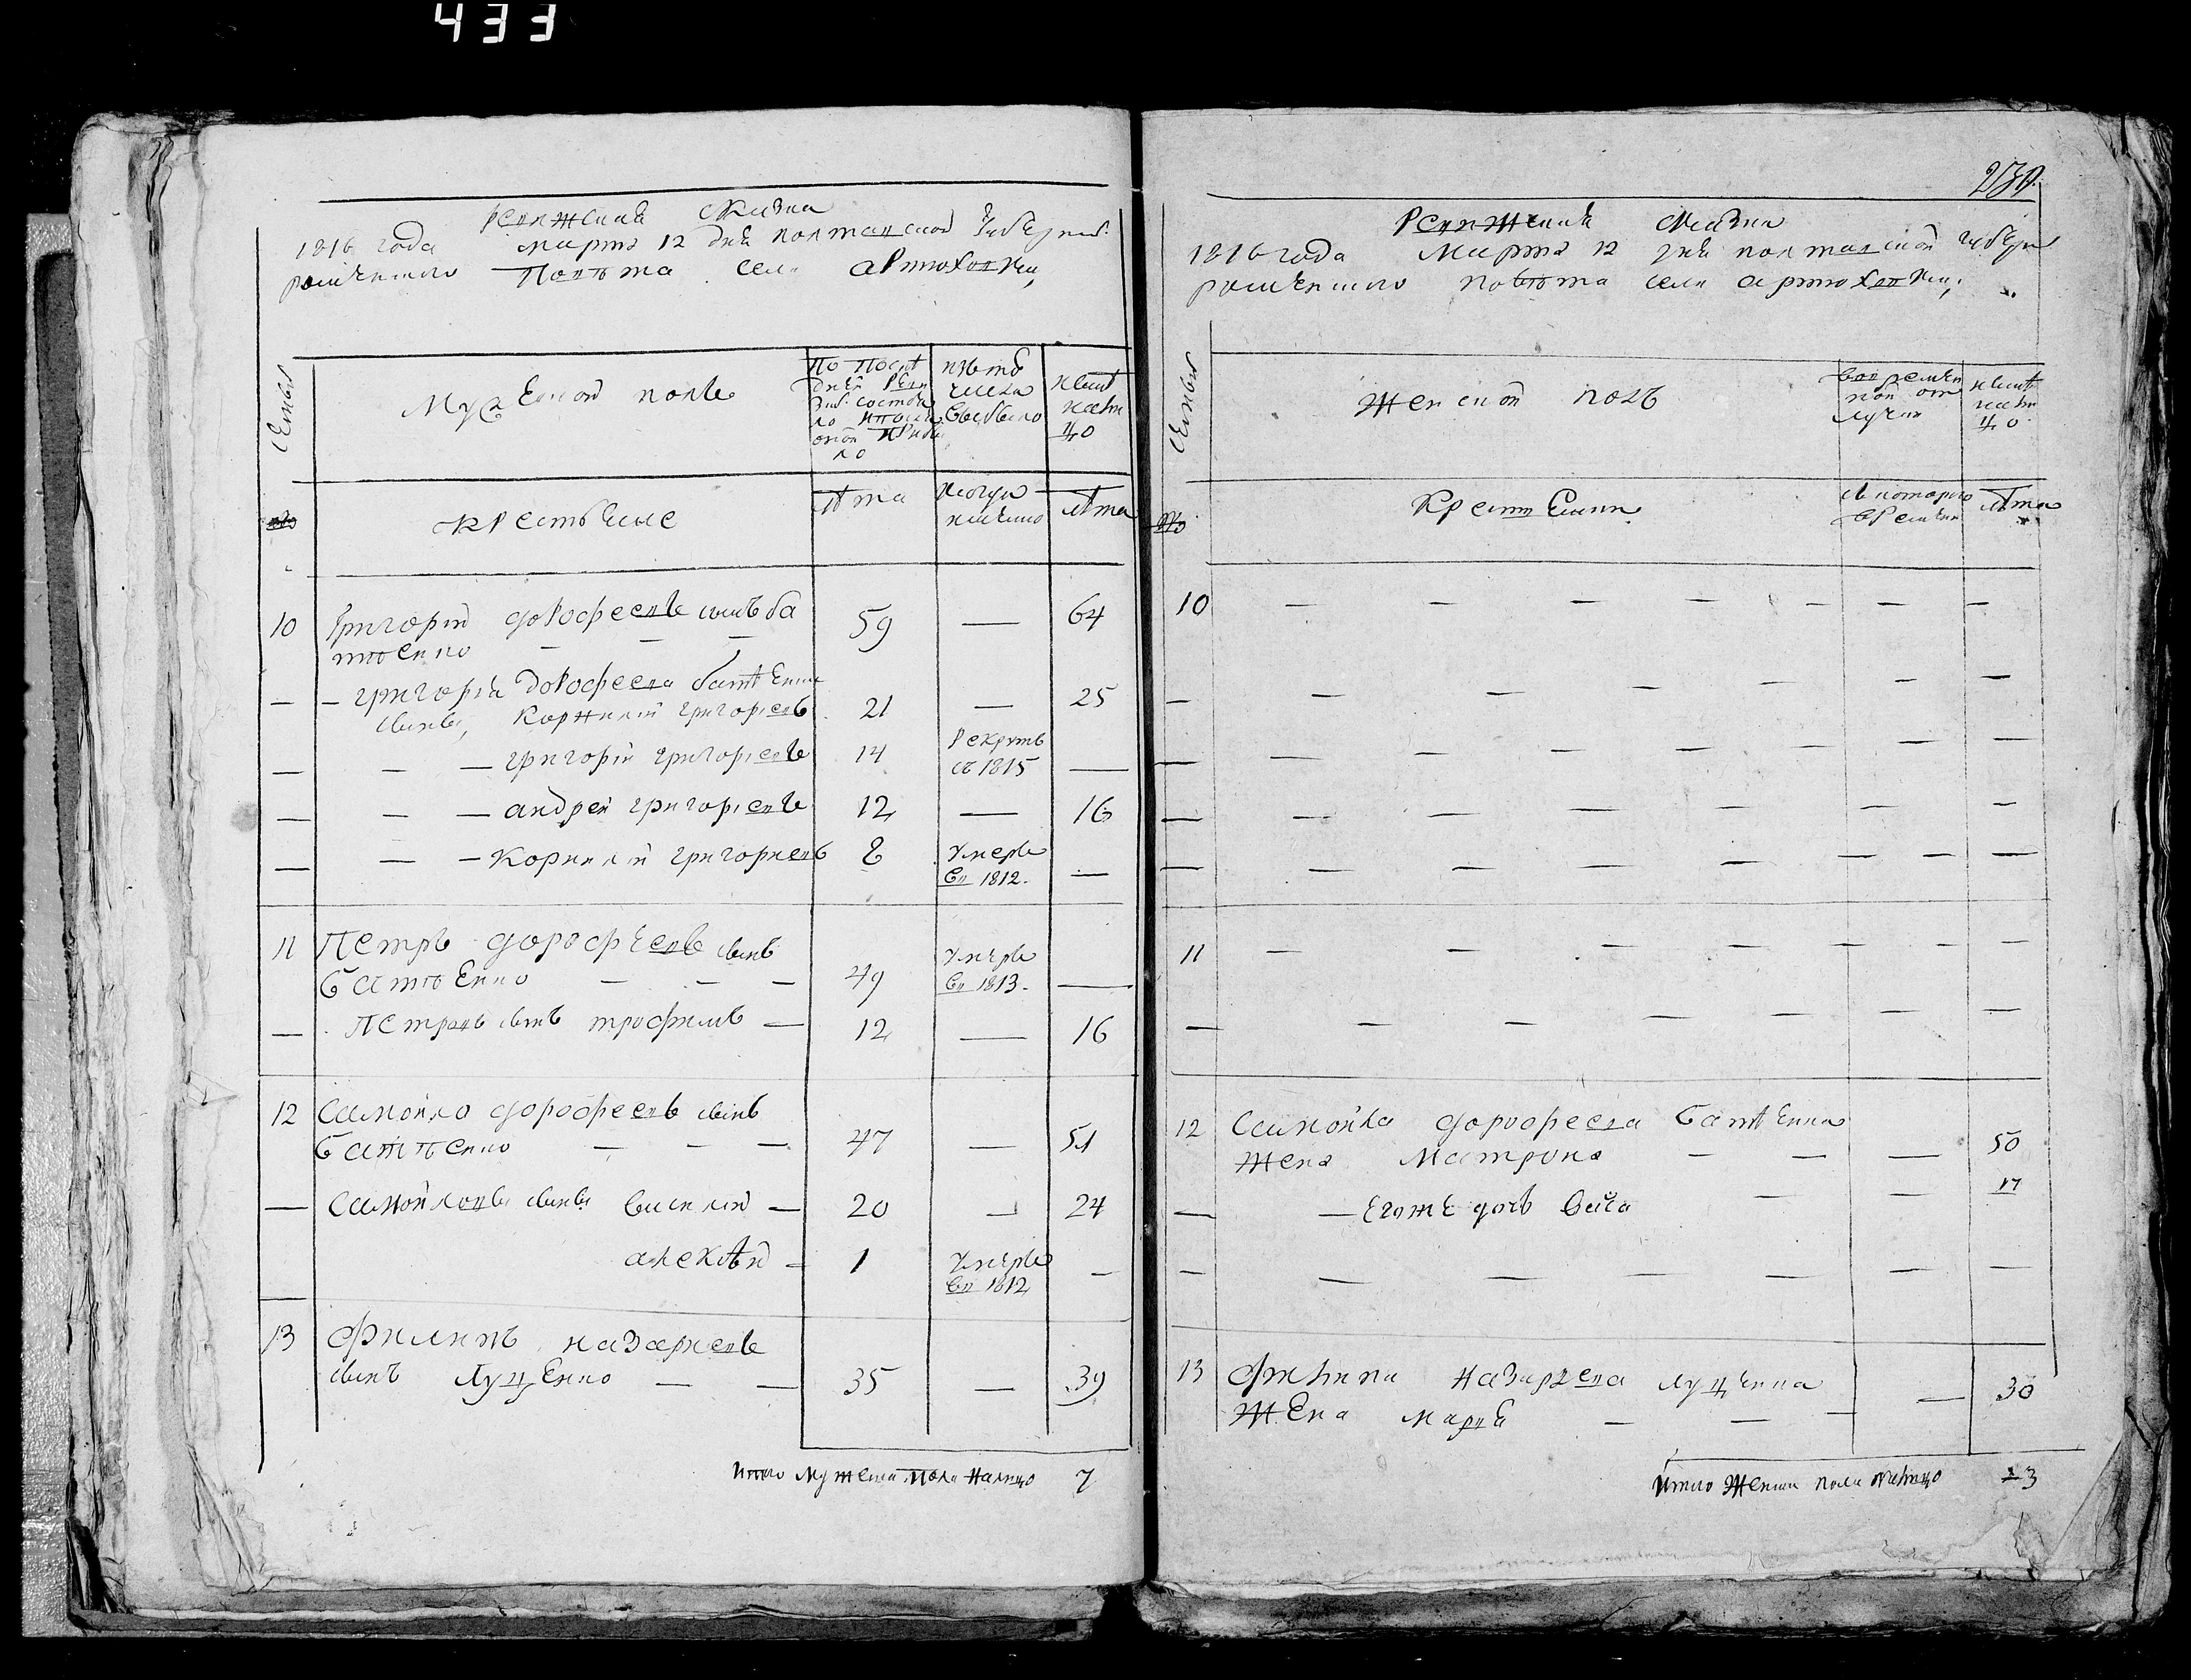 433
Ревижская сказка
1816 года марта 12 дня полтавской губернии
роменского повѣта села артюховки,
Семьи
Мужеской полъ
По послѣдней ревизіи состояло и послѣ оной прибыло
изъ того числа выбыло
нынѣ налицо
№
крестьяне
лѣта
когда именно
лѣта
10 Григорій дорофеевъ сынъ ба
тѣенко — — — 59 — 64
— – григорія дорофеева батѣенка
сыны, коржнѣй григорьевъ 21 — 25
— — — григорій григорьевъ 14 рекрутъ
съ 1815 —
— — — андрей григорьевъ 12 — 16
— — — корнилій григорьевъ 8 умеръ
въ 1812. —
11 Петръ дорофеевъ сынъ
батѣенко — — — 49 умеръ
въ 1813. —
— Петровъ сынъ трофимъ — 12 — 16
12 Самойло дорофеевъ сынъ
батѣенко — — — 47 — 51
— Самойловы сыны василій — 20 — 24
алексѣй – 1 умеръ
въ 1812 —
13 Филипъ назарьевъ
сынъ Луценко — — 35 — 39
Итого мужеска пола налицо 7
230.
Ревижская сказка
1816 года марта 12 дня полтавской губерни
роменского повѣта села артюховки,
Семьи
Женской полъ
во временной отлучки
нынѣ налицо
№
Крестьянки
съ которого времени
лѣта
10 — — — — — — —
11 — — — — — — —
12 Самойла дорофеева батѣенка
жена Матрона — — — 50
— — егоже дочь — — 17
13 Филипа назарьева луценка
жена марія — — — — 30
Итого женска пола налицо 3